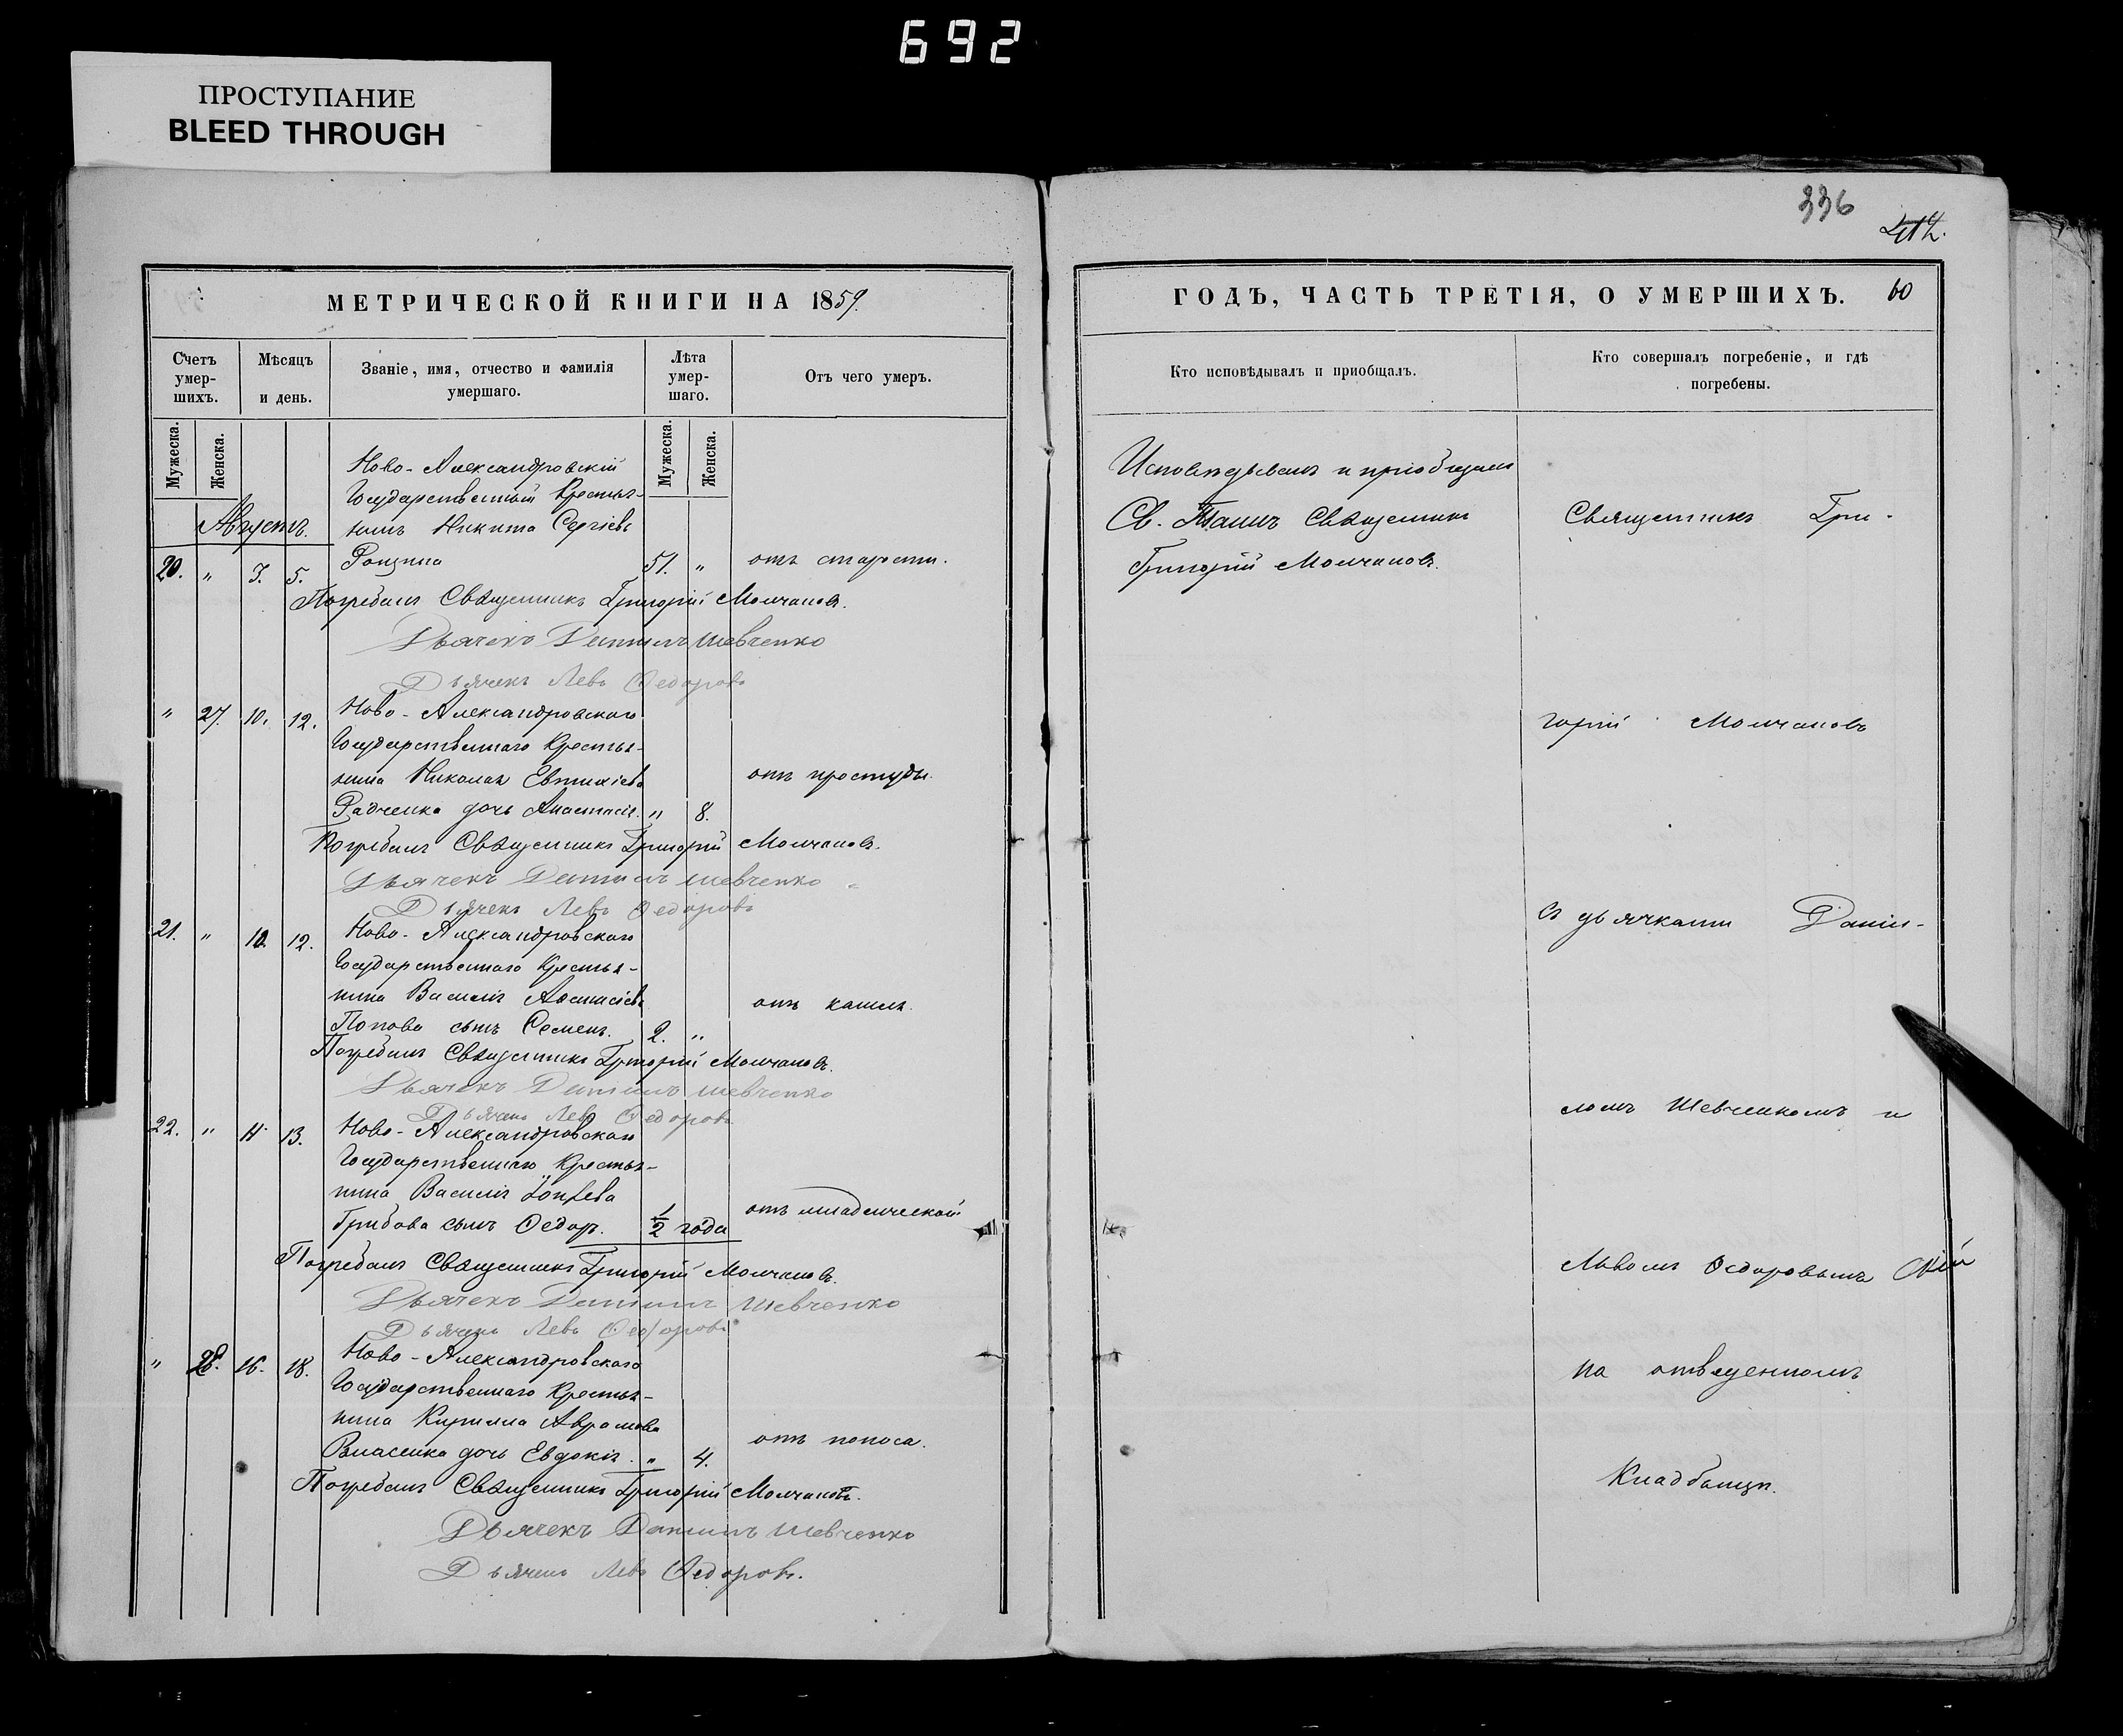 692
ПРОСТУПАНИЕ
BLEED THROUGH
336
МЕТРИЧЕСКОЙ КНИГИ НА 1859.
Счетъ умер-шихъ.
Мѣсяцъ и день.
Званіе, имя, отчество и фамилія умершаго.
Лѣта умер-шаго.
Отъ чего умеръ.
Мужеска.
Женска.
Мужеска.
Женска.
Августъ.
Ново-Александровскій
Государственный Крестья-
нинъ Никита Сергіевъ
20. " 3. 5. Рощина 51. " отъ старости.
Погребалъ Священникъ Григорій Молчановъ.
Дьячекъ Даніилъ Шевченко
Дьячекъ Левъ Ѳедоровъ
" 27. 10. 12. Ново-Александровскаго
Государственнаго Крестья-
нина Николая Евтихіева отъ простуды.
Радченка дочь Анастасія. " 8.
Погребалъ Священникъ Григорій Молчановъ.
Дьячекъ Даніилъ Шевченко
Дьячекъ Левъ Ѳедоровъ
21. " 10. 12. Ново-Александровскаго
Государственнаго Крестья-
нина Василія Аѳанасіева отъ кашля.
Попова сынъ Семенъ. 2. "
Погребалъ Священникъ Григорій Молчановъ.
Дьячекъ Даніилъ Шевченко
Дьячекъ Левъ Ѳедоровъ
22. " 11. 13. Ново-Александровскаго
Государственнаго Крестья-
нина Василія
Грибова сынъ Ѳедоръ. 1/2 года отъ младенческой
Погребалъ Священникъ Григорій Молчановъ.
Дьячекъ Даніилъ Шевченко
Дьячекъ Левъ Ѳедоровъ
" 28. 16. 18. Ново-Александровскаго
Государственнаго Крестья-
нина Кирилла Аврамова
Власенка дочь Евдокія. " 4. отъ поноса.
Погребалъ Священникъ Григорій Молчановъ.
Дьячекъ Даніилъ Шевченко
Дьячекъ Левъ Ѳедоровъ.
ГОДЪ, ЧАСТЬ ТРЕТІЯ, О УМЕРШИХЪ. 60
Кто исповѣдывалъ и приобщалъ.
Кто совершалъ погребеніе, и гдѣ погребены.
Исповѣдывалъ и пріобщалъ
Св. Таинъ Священникъ
Григорій Молчановъ.
Священникъ Гри-
горій Молчановъ
съ дьячками Даніи-
ломъ Шевченкомъ и
Львомъ Ѳедоровымъ
на отведенномъ
Кладбищѣ.